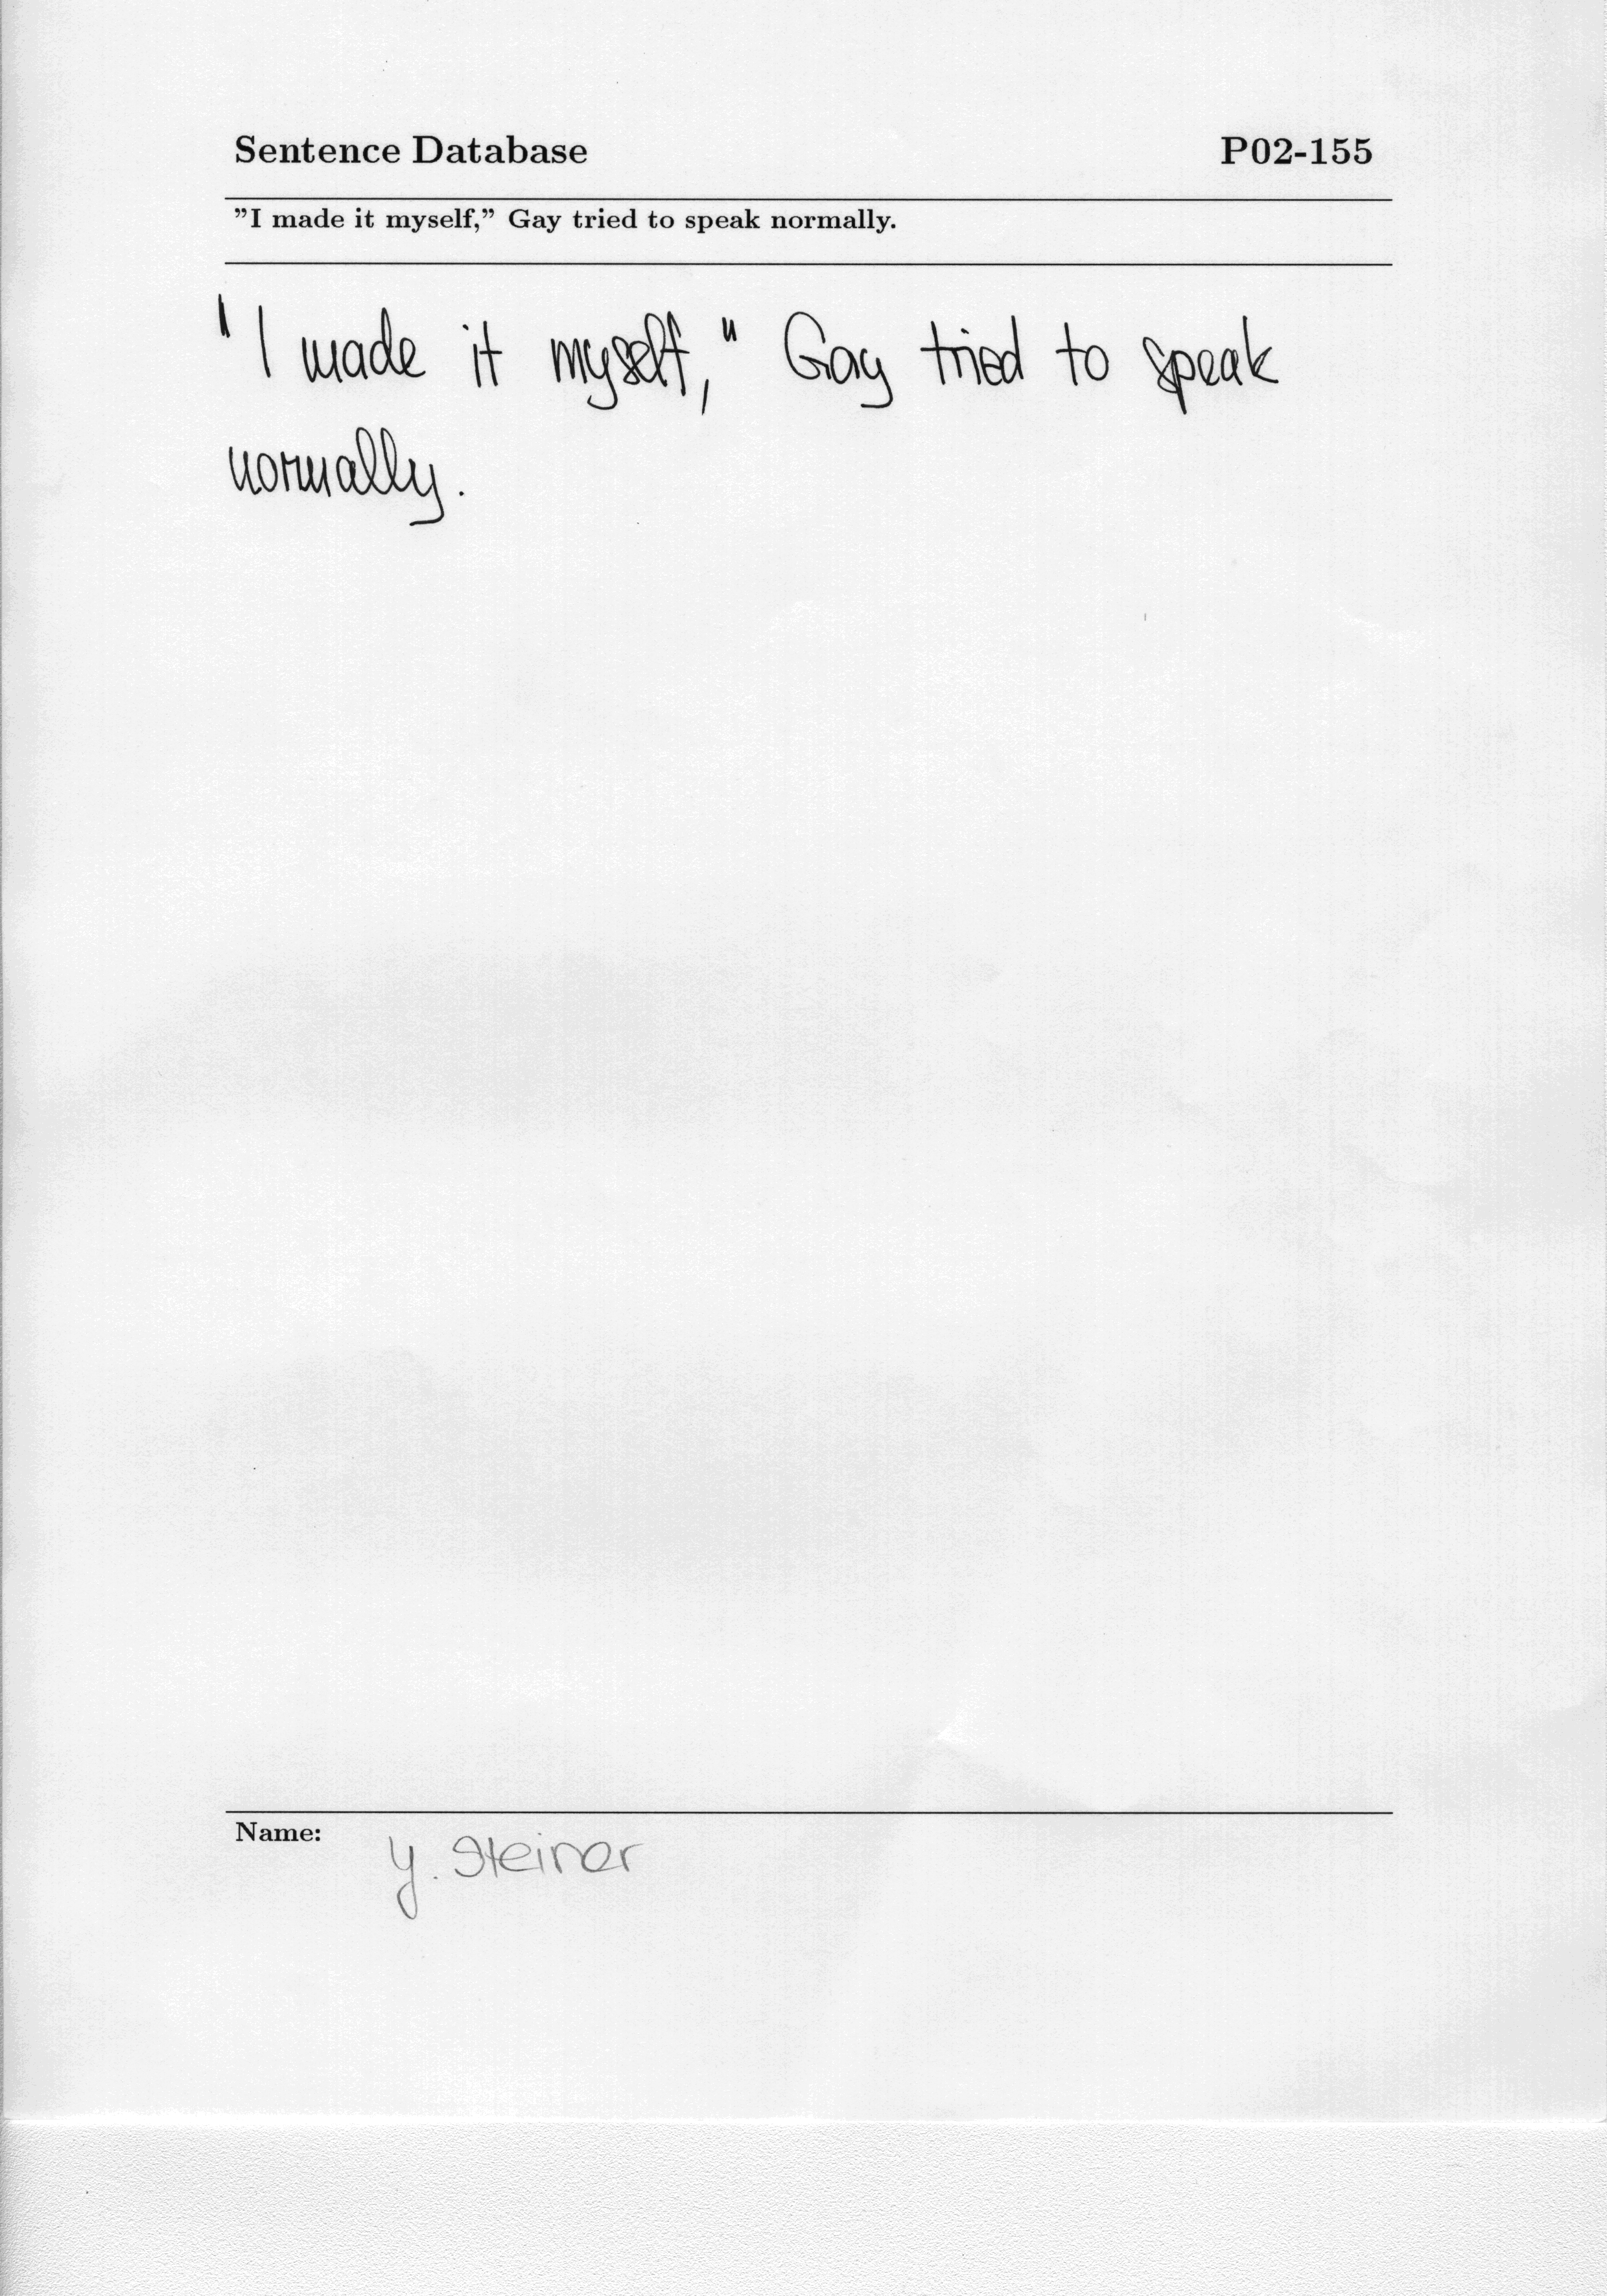 Sentence Database P02-155
”I made it myself,” Gay tried to speak normally.
"I made it myself," Gay tried to speak
normally.
Name: Y. Steiner